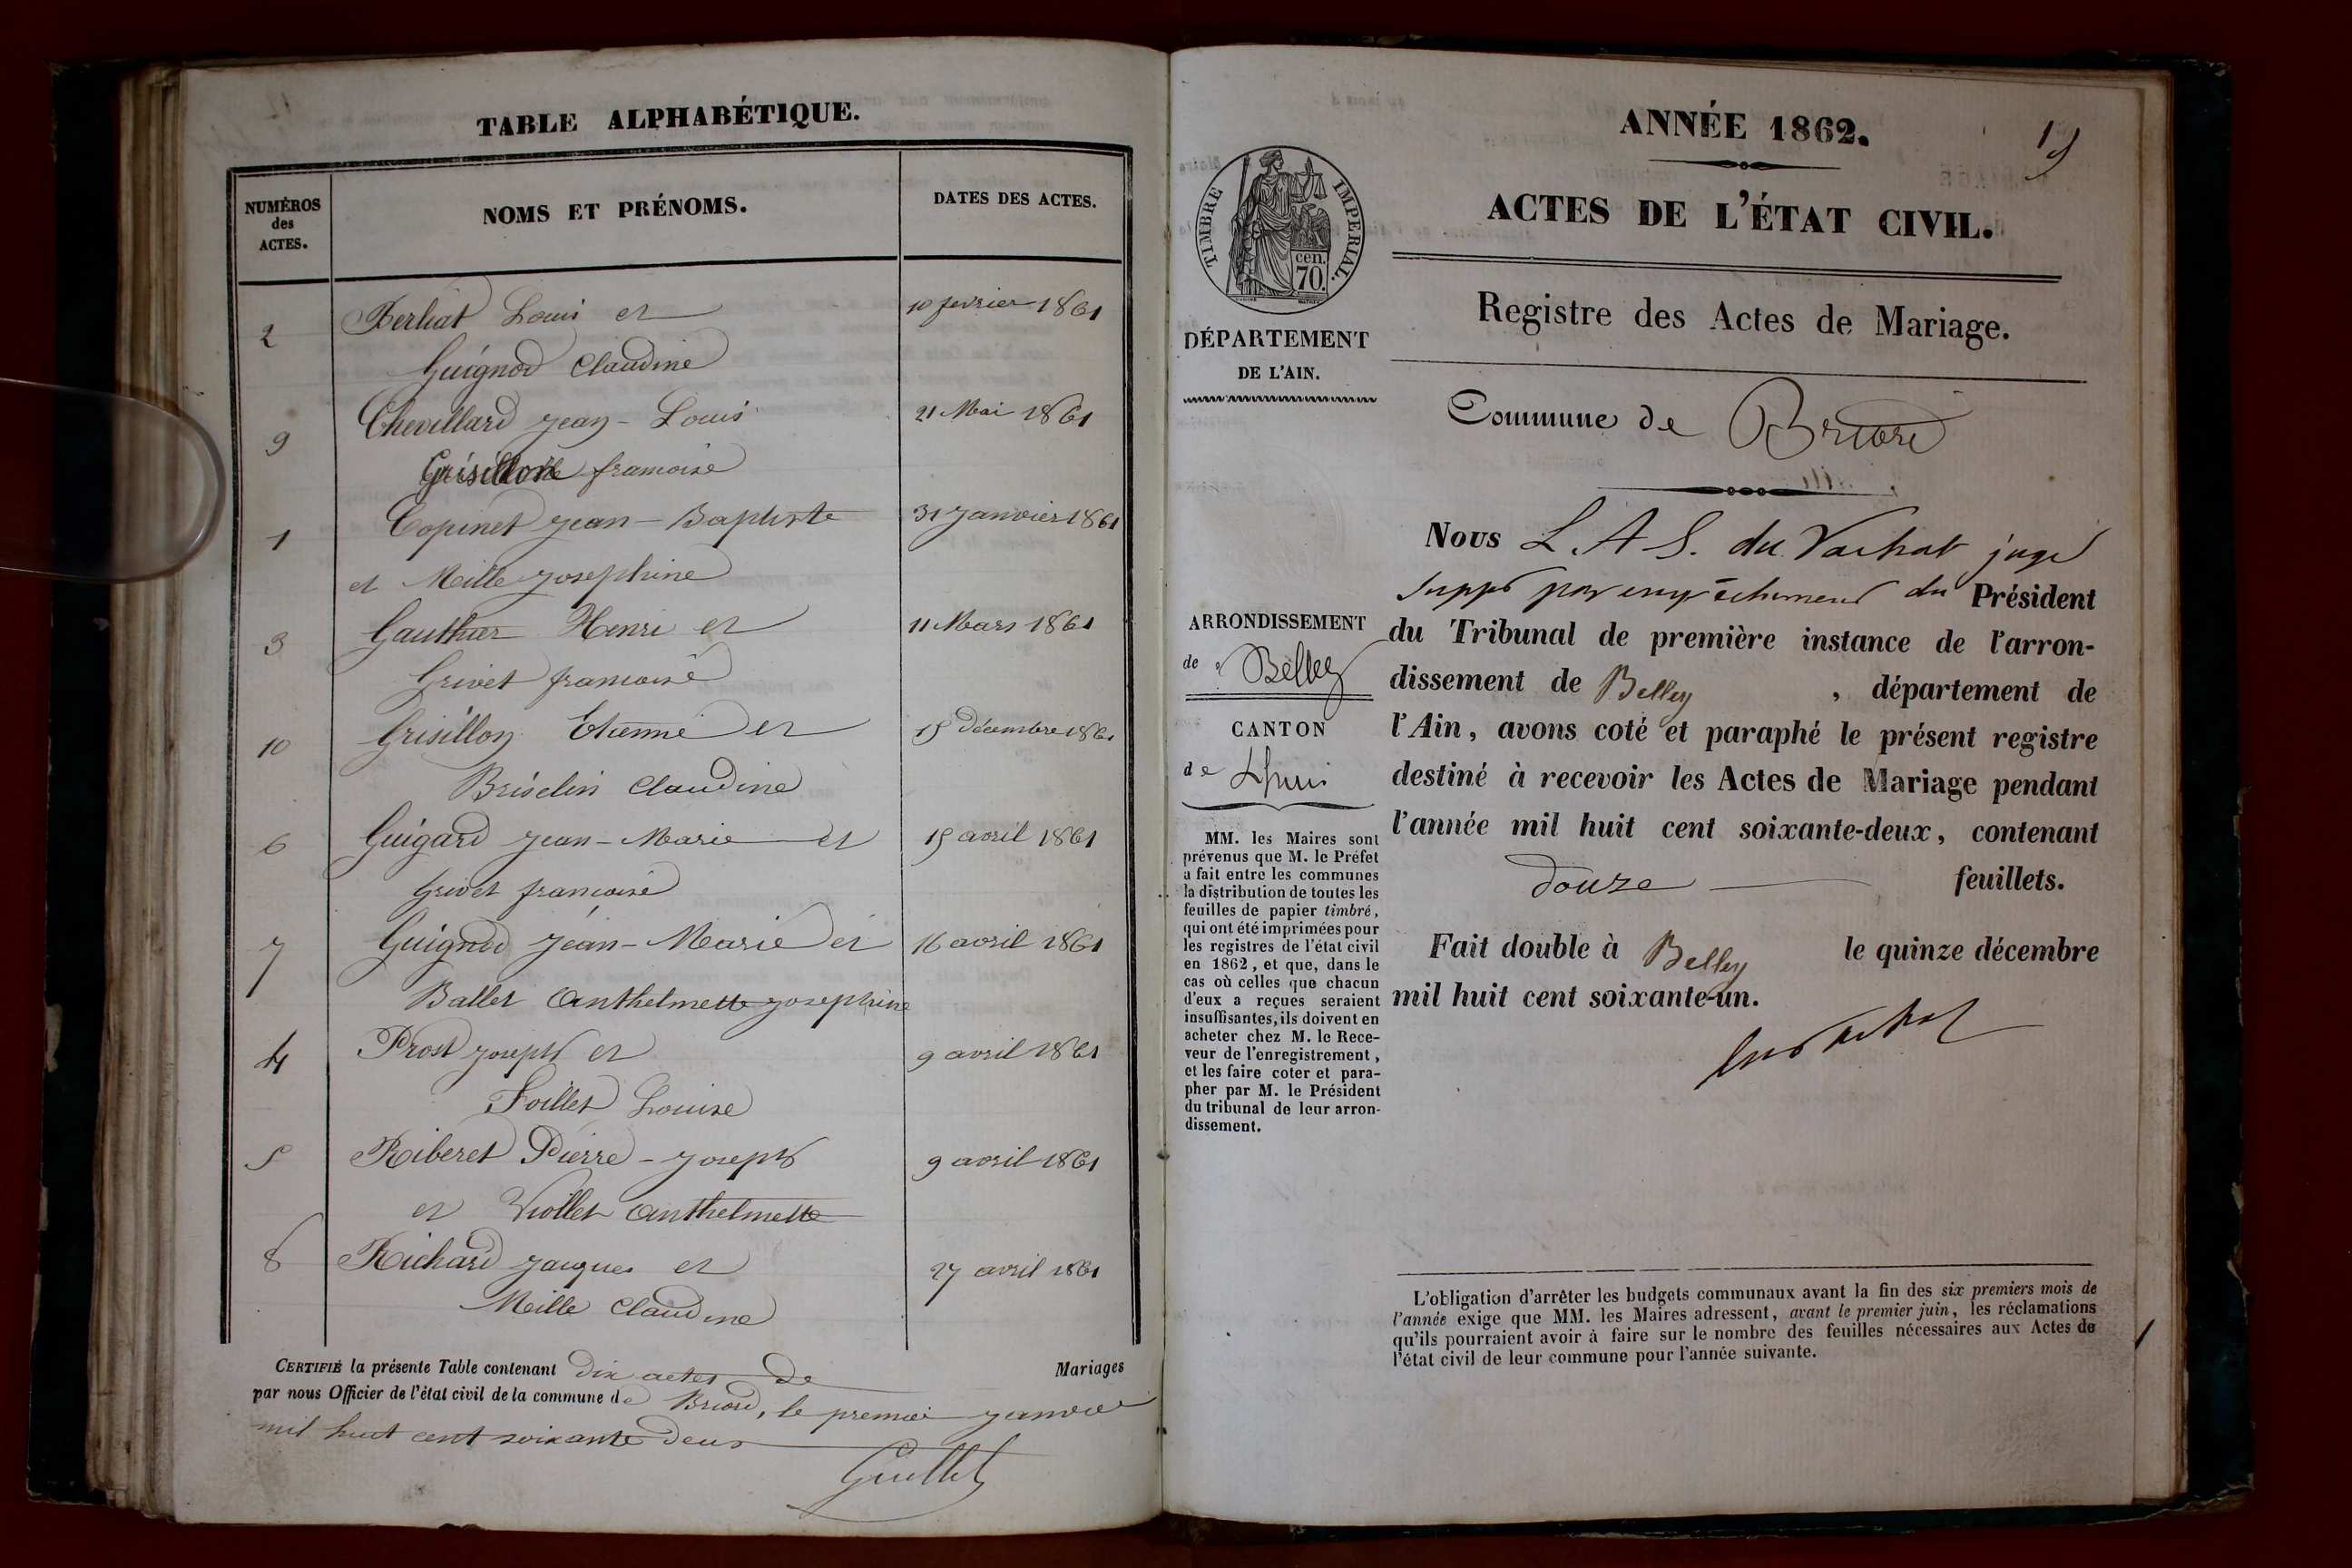 TABLE ALPHABÉTIQUE.
NUMÉROS
des
ACTES.
NOMS ET PRÉNOMS.
DATES DES ACTES.
2 Berliat Louis et 10 fevrier 1861
Guignod Claudine
9 Chevillard Jean-Louis 21 Mai 1861
Grisillon francoise
1 Copinet Jean-Baptiste 31 Janvier 1861
et Meille Josephine
3 Gauthier Henri et 11 Mars 1861
Grivet francoise
10 Grisillon Etienne et 15 décembre 1861
Briselin Claudine
6 Guigard Jean-Marie et 15 avril 1861
Grivet francoise
7 Guignod Jean-Marie et 16 avril 1861
Ballet Anthelmette Josephine
4 Prost Joseph et 9 avril 1861
Foillet Louise
5 Riberet Pierre-Joseph 9 avril 1861
et Viollet Anthelmette
8 Richard Jacques et 27 avril 1861
Meille Claudine
CERTIFIÉ la présente Table contenant dix actes de Mariages
par nous Officier de l'état civil de la commune de Briord, le premier Janvier
mil huit cent soixante deux
Guillet
ANNÉE 1862.
ACTES DE L'ÉTAT CIVIL.
Registre des Actes de Mariage.
TIMBRE IMPERIAL.
cen.
70.
DÉPARTEMENT
DE L'AIN.
Commune de Briord
ARRONDISSEMENT
de Belley
CANTON
de Lhuis
MM. les Maires sont
prévenus que M. le Préfet
a fait entre les communes
la distribution de toutes les
feuilles de papier timbré,
qui ont été imprimées pour
les registres de l'état civil
en 1862, et que, dans le
cas où celles que chacun
d'eux a reçues seraient
insuffisantes, ils doivent en
acheter chez M. le Rece-
veur de l'enregistrement,
et les faire coter et para-
pher par M. le Président
du tribunal de leur arron-
dissement.
Nous L. A. S. du Vachat juge
suppt par empêchement du Président
du Tribunal de première instance de l'arron-
dissement de Belley, département de
l'Ain, avons coté et paraphé le présent registre
destiné à recevoir les Actes de Mariage pendant
l'année mil huit cent soixante-deux, contenant
douze feuillets.
Fait double à Belley le quinze décembre
mil huit cent soixante-un.
L'obligation d'arrêter les budgets communaux avant la fin des six premiers mois de
l'année exige que MM. les Maires adressent, avant le premier juin, les réclamations
qu'ils pourraient avoir à faire sur le nombre des feuilles nécessaires aux Actes de
l'état civil de leur commune pour l'année suivante.